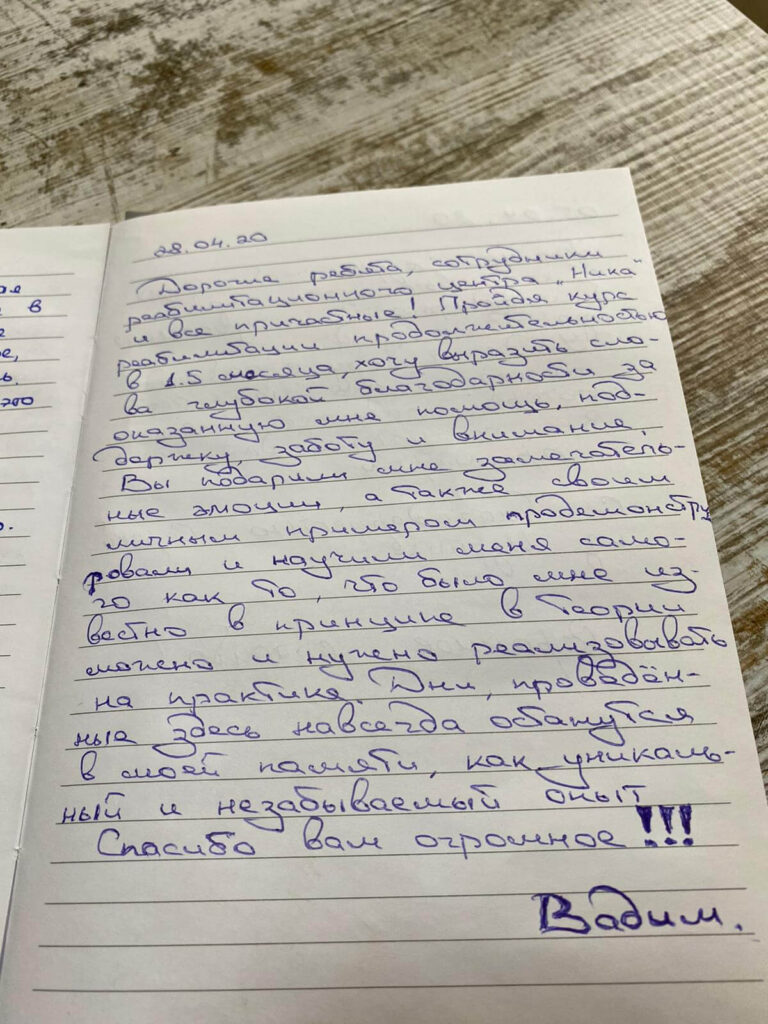 ая
в
е,
ь.
это
28.04.20
Дорогие ребята, сотрудники
реабилитационного центра „Ника"
и все причастные! Пройдя курс
реабилитации продолжительностью
в 1.5 месяца, хочу выразить сло-
ва глубокой благодарности за
оказанную мне помощь, под-
держку, заботу и внимание.
Вы подарили мне замечатель-
ные эмоции, а также своим
личным примером продемонстри
ровали и научили меня само-
го как то, что было мне из-
вестно в принципе в теории
можно и нужно реализовывать
на практике. Дни, проведён-
ные здесь навсегда останутся
в моей памяти, как уникаль-
ный и незабываемый опыт
Спасибо вам огромное!!!
Вадим.